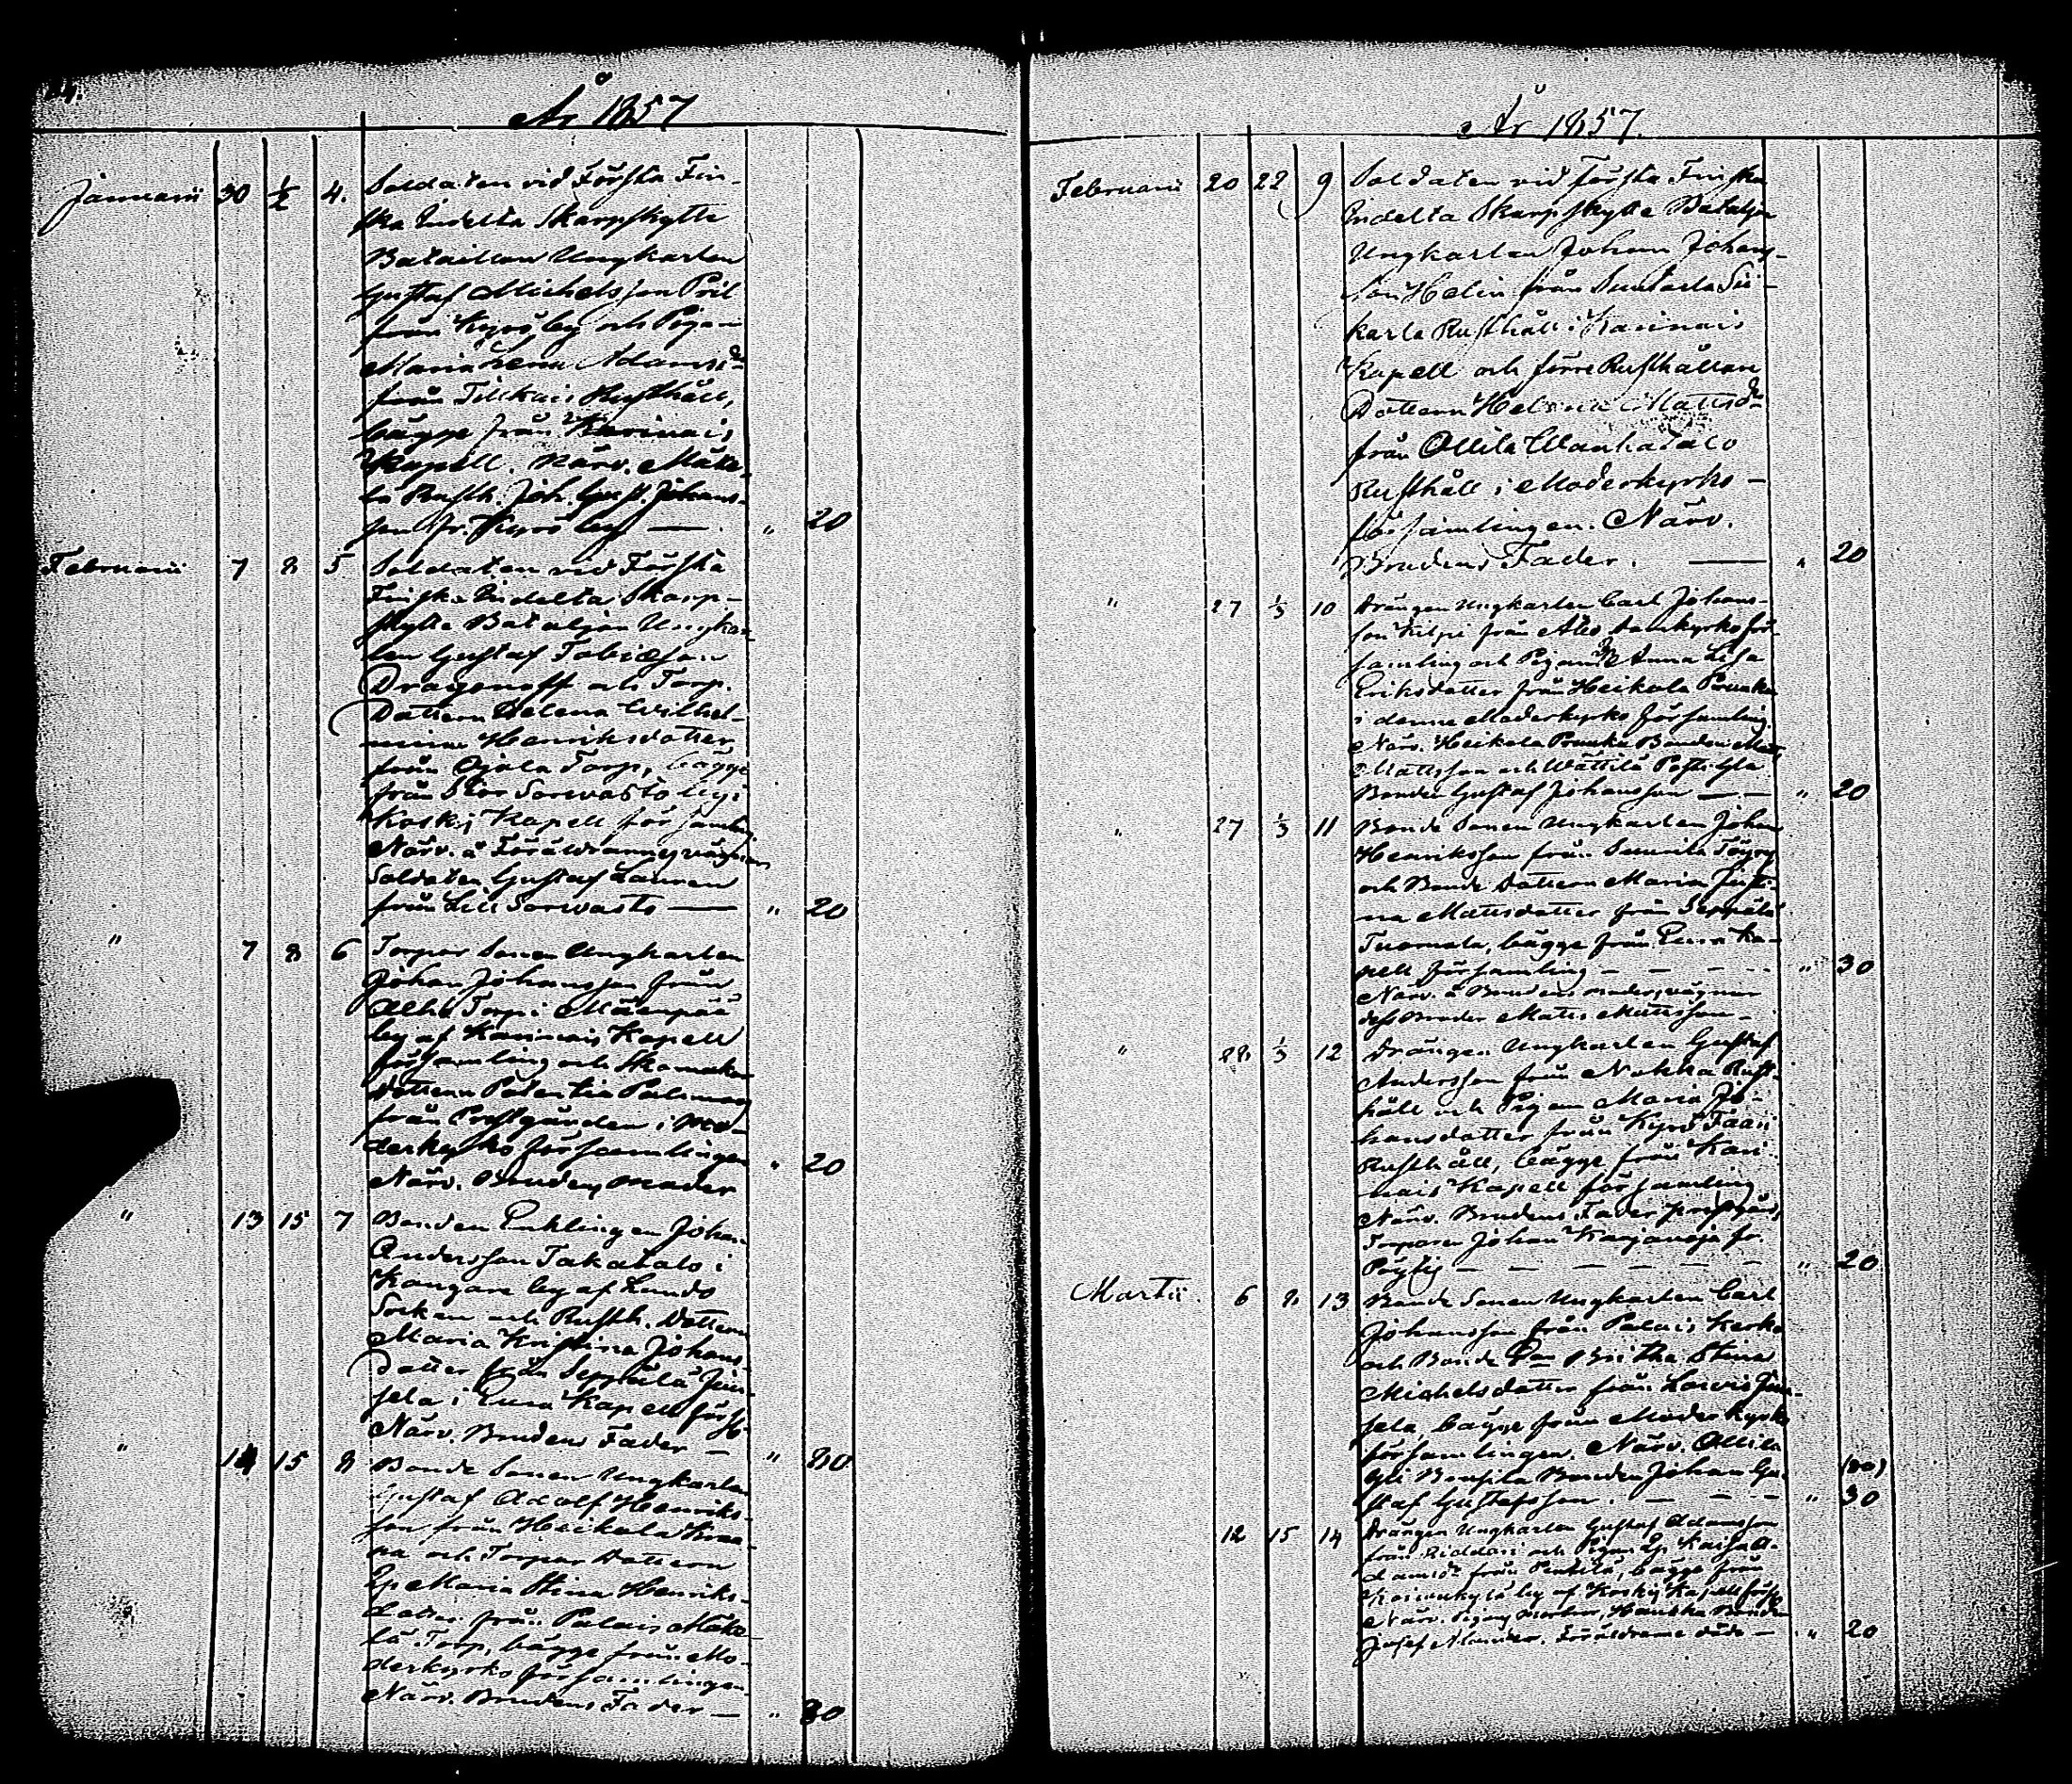 År 1857
Januarii 30 1/2 4. Soldaten vid Första Fin-
ska Indelta Skarpskytte
Bataillon Ungkarlen
Gustaf Michelsson Pril
från Kyrö by och Pigan
Maria Lena Adamsdr
från Tillkais Rusthåll,
bägge från Karinais
Kapell. Närv. Mäke-
lä Rusth. Joh. Gust. Johans-
son fr. Kyrö by — " 20
Februarii 7 8 5 Soldaten vid Första
Finska Indelta Skarp-
skytte Bataljon Ungkar-
len Gustaf Tobiasson
Dragonoff och Torp.
Dottern Helena Wilhel-
mina Henriksdotter
från Ojala Torp, bägge
från Stor Sorvasto by i
Koskis Kapell församl.
Närv. å Föräldrarnes vägnar
Soldaten Gustaf Lauren
från Lill Sorvasto — " 20
" 7 8 6 Torpar Sonen Ungkarlen
Johan Johansson från
Alho Torp i Mäenpää
by af Karinais Kapell
församling och Skomakar
dottern Palman
från Prestgården i Mo-
derkyrko församlingen " 20
Närv. Brudens Moder
" 13 15 7 Bonden Enklingen Johan
Andersson Takatalo i
Kangare by af Lundo
Socken och Rusth. Dottern
Maria Kristina Johans-
dotter från Seppälä Jun-
sela i Eura Kapell förs.
Närv. Brudens Fader — " 80
" 14 15 8 Bonde Sonen Ungkarlen
Gustaf Adolf Henriks-
son från Heikola
och Torpar Dottern
Ep Maria Stina Henriks-
dotter från Palais Mäke-
lä Torp, bägge från Mo-
derkyrko församlingen.
Närv. Brudens Fader — " 30
År 1857.
Februarii 20 22 9 Soldaten vid Första Finska
Indelta Skarpskytte Bataljon
Ungkarlen Johan Johans-
son Helin från
karla Rusthåll i Karinais
Kapell och förre Rusthållare
Dottern Helena Mattsdr
från Ollila Wanhatalo
Rusthåll i Moderkyrko-
församlingen. Närv.
Brudens Fader. — " 20
" 27 1/3 10 Drängen Ungkarlen Carl Johans-
son Kilpi från Åbo Domkyrko för-
samling och Pigan Anna Lisa
Eriksdotter från Heikola Prunka
i denna Moderkyrko församling.
Närv. Heikola Prunka Bonden Matts
Mattsson och Wättilä
Bonden Gustaf Johansson — — " 20
" 27 1/3 11 Bonde Sonen Ungkarlen Johan
Henriksson från
och Bonde dottern Maria Justi-
na Mattsdotter från Seppälä
Tuomala, bägge från Eura Ka-
pell församling — — — " 30
Närv. å Brudens moders vägnar
dess Broder Matts Mattsson —
" 28 1/3 12 Drängen Ungkarlen Gustaf
Andersson från Nokka Rust-
håll och Pigan Maria Jo-
hansdotter från Kyrö
Rusthåll, bägge från Kari-
nais Kapell församling
Närv. Brudens Fader
Torparen Johan Karjanoja fr.
Pöytis — — — — — — " 20
Martii. 6 8 13 Bonde Sonen Ungkarlen Carl
Johansson från Palais Kerko
och Bonde Britha Stina
Michelsdotter från Jun-
sela, bägge från Moderkyrko
församlingen. Närv. Ollila
Yli Bonden Johan Gu- (80)
staf Gustafsson. — — — " 30
12 15 14 Drängen Ungkarlen Gustaf Adamsson
från Riddari och Pigan Ep. Kaisa A-
damsdr från Penttilä, bägge från
Koivukylä by af Koskis Kapell förs.
Närv. Pigans Morbror, Bonden
Josef Föräldrarne döde — " 20